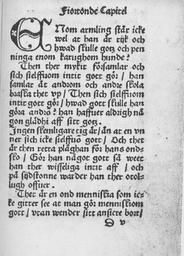 Fiorönde Capitel
ENom armling står icke
wel at han är rijk och
hwad skulle gotz och pen
ninga enom karughom hunde?
Then ther mykit församlar och
sich sielffuom intit gott gör/ han
samlar åt androm och andre skola
braska thet vp/ Then sich sielffuom
intit gott gör/ hwad gott skulle han
göra androm? han haffuer aldrigh nå
gon glädhi aff sitt gotz.
Ingen skemligare tig är/ än at en vn
ner sich icke sielffuo gott/ Och thet
är then retta plåghan för hans ondsko/
Gör han något gott så weet
han ther wisseliga intit aff/ och
på sijdstonne warder han ther otols
lugh offuer.
Thet är en ond menniska som icke
gitter see at man gör menniskom
gott/ vtan wender sitt ansicte bort/
D v